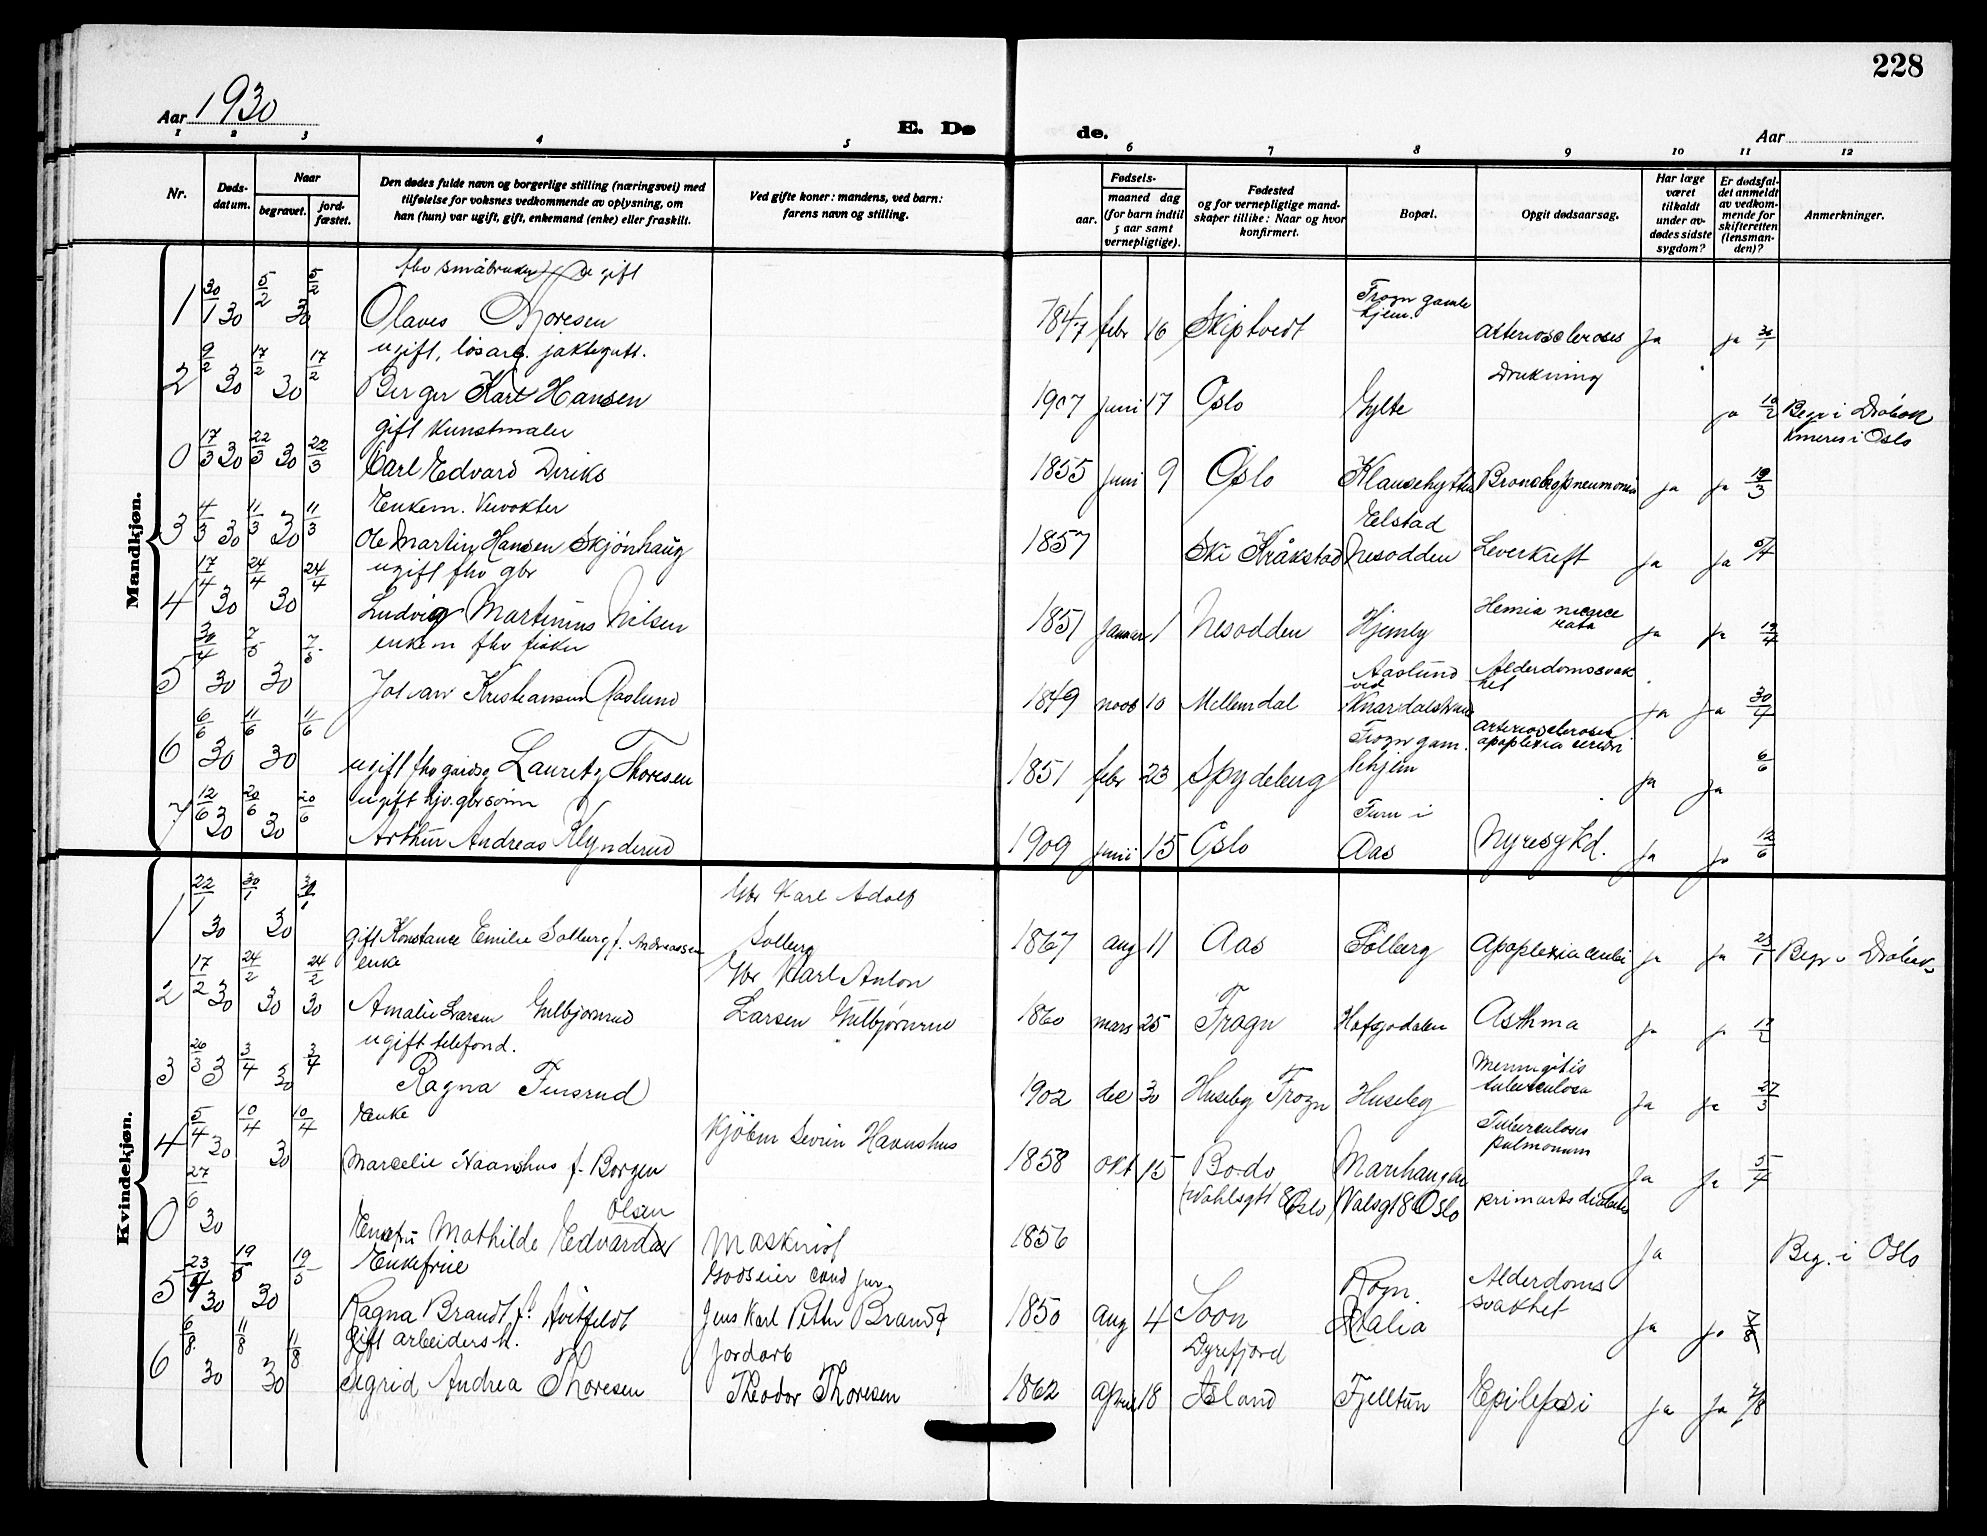 228
Aar 1930
E. Dø
de.
Aar
1 2 3 4 5 6 7 8 9 10 11 12
Nr.
Døds-
datum.
Naar
begravet.
jord-
fæstet.
Den dødes fulde navn og borgerlige stilling (næringsvei) med
tilføielse for voksnes vedkommende av oplysning, om
han (hun) var ugift, gift, enkemand (enke) eller fraskilt.
Ved gifte koner: mandens, ved barn:
farens navn og stilling.
Fødsels-
aar.
maaned dag
(for barn indtil
5 aar samt
vernepligtige).
Fødested
og for vernepligtige mand-
skaper tillike: Naar og hvor
konfirmert.
Bopæl.
Opgit dødsaarsag.
Har læge
været
tilkaldt
under av-
dødes sidste
sygdom?
Er dødsfal-
det anmeldt
av vedkom-
mende for
skifteretten
(lensman-
den)?
Anmerkninger.
Mandkjøn.
fhv småbruker gift
1 30/1 30 5/2 30 5/2 Olaves Thoresen 1847 febr 16 Skiptvedt Frogn gamle hjem. Arteriosclerosis Ja ja 30/1
ugift, løsarb. jaktegutt.
2 9/2 30 17/2 30 17/2 Berger Karl Hansen 1907 Juni 17 Oslo Gylte Drukning ja 10/2 Begr i Drøbak
gift Kunstmaler
0 17/3 30 22/3 30 22/3 Carl Edvard Diriks 1855 Juni 9 Oslo Klausehytten Bronchopneumonia ja ja 19/3 i Oslo
Enkem.
3 4/3 30 11/3 30 11/3 Ole Martin Hansen Skjønhaug 1857 Ski Kråkstad Elstad Nesodden Leverkreft ja ja 5/4
ugift fhv gbr
4 17/4 30 24/4 30 24/4 Ludvig Martinius Nilsen 1851 Januar 1 Nesodden Hjemly ja ja 19/4
enkem fhv fisker
5 30/4 30 7/5 30 7/5 Johan Kristiansen Aaslund 1849 novb 10 Mellemdal Aaslund ved Knardalstrand Alderdomssvakhet ja ja 30/4
6 6/6 30 11/6 30 11/6 ugift fhv gårdsg Lauritz Thoresen 1851 febr 23 Spydeberg Frogn gam. hjem Arteriosclerosis apoplexia cerebri ja ja 6/6
ugift hjv. gbrsønn
7 12/6 30 20/6 30 20/6 Arthur Andreas Klynderud 1909 Juni 15 Oslo Furu i Aas Nyresykd. ja ja 12/6
Kvindekjøn.
Gbr Karl Adolf
1 22/1 30 30/1 30 gift Konstance Emilie Solberg f. Andreassen Solberg 1867 aug 11 Aas Solberg Apoplexia cerebri ja ja 25/1 Begr i Drøbak
enke Gbr Karl Anton
2 17/2 30 24/2 30 24/2 30 Amalie Larsen Gulbjørnrud Larsen Gulbjørnrud 1860 mars 25 Frogn Hofgodalen Asthma ja ja 17/2
ugift telefond.
3 26/3 3 3/4 30 3/4 Ragna Finsrud 1902 dec 30 Huseby Frogn Huseby Meningitis tuberculosa ja ja 27/3
Enke
4 5/4 30 10/4 30 10/4 Marcelie Haanshus f. Borgen Kjøbm Sevrin Havnshus 1858 okt 15 Bodø Tuberculosis pulmonum ja ja 5/4
0 27/6 30 Enkefru Mathilde Edvarda Olsen Maskinist 1856 (Wahlsgt 8 Oslo) Walsg 18 Oslo ja Beg. i Oslo
Enkefrue Godseier cand jur.
5 30 19/5 30 19/5 Ragna Brandt f. Hvitfeldt Jens Karl Petter Brandt 1850 Aug 4 Soon Alderdoms svakhet ja ja
gift arbeidersk. Jordarb
6 6/8 30 11/8 30 11/8 Sigrid Andrea Thoresen Theodor Thoresen 1862 April 18 Dyrefjord Island Fjelltun Epilepsi ja ja 7/8